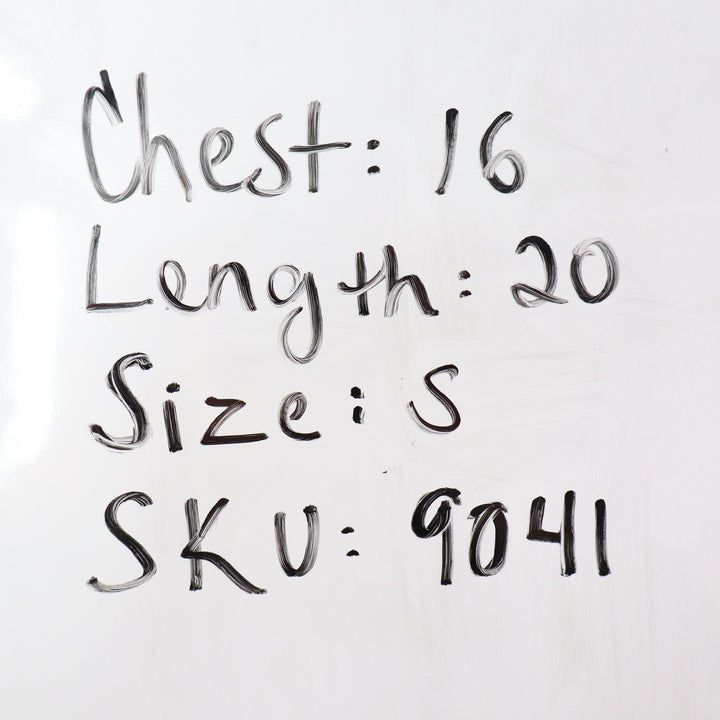 Chest: 16
Length: 20
Size: S
SKU: 9041